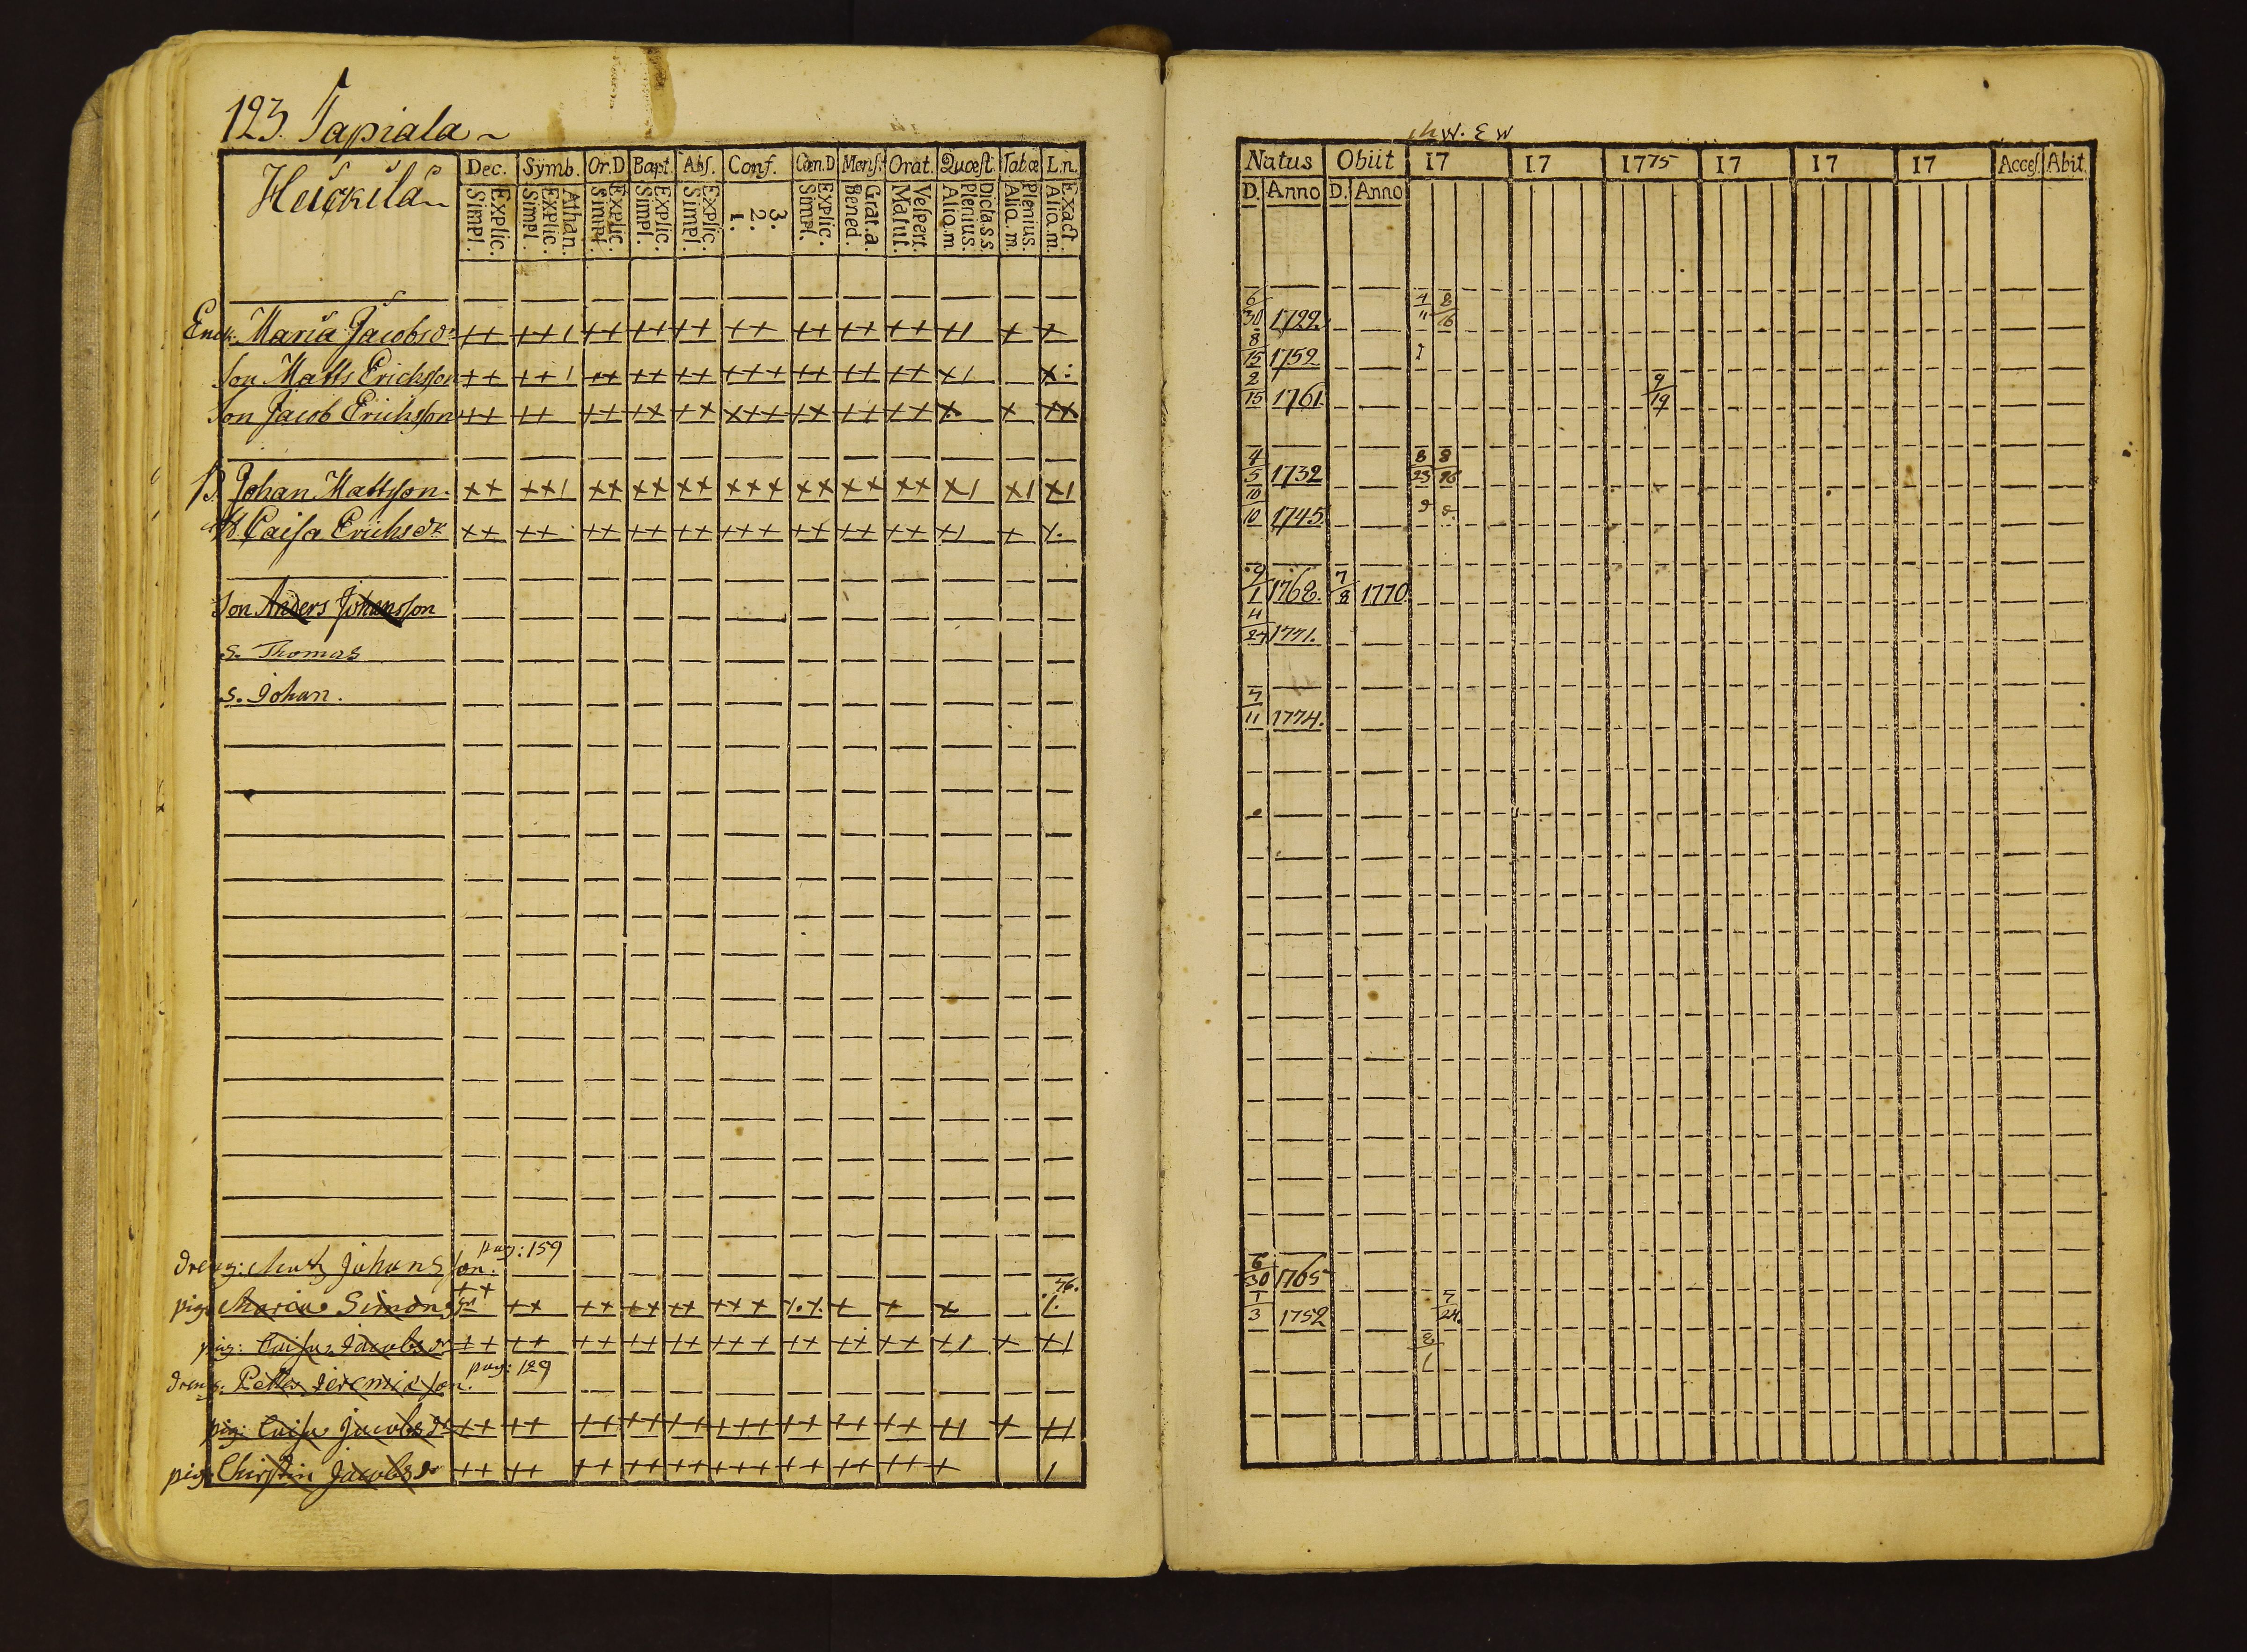 123. Tapiala
Heickilä
Dec. Symb. Or.D Bapt. Abs. Conf. Cœn.D Mens. Orat. Quæst. Tabæ L.n.
Explic. Simpl. Athan. Explic. Simpl. Explic. Simpl. Explic. Simpl. Explic. Simpl. 3. 2. 1. Explic. Simpl. Grat.a. Bened. Vespert. Matut. Diclass. Plenius. Aliq.m. Plenius. Aliq.m. Exact Aliq.m.
Enck. Maria Jacobsdr ++ ++1 ++ ++ ++ ++ ++ ++ ++ +1 + +
Son Matts Ericksson ++ ++1 ++ ++ ++ +++ ++ ++ ++ +1 x:
Son Jacob Erichsson ++ ++ ++ ++ ++ +++ ++ ++ ++ x + ++
B. Johan Mattsson. ++ ++1 ++ ++ ++ +++ ++ ++ ++ +1 +1 +1
H. Caisa Erichsdr ++ ++ ++ ++ ++ +++ ++ ++ ++ +1 +
Son Anders Johansson
S. Thomas
s. Johan.
pag: 159
dreng: Matts Johansson.
76.
pig: Maria Simonsdr ++ ++ ++ ++ ++ +++ + + +
pig: Caisa Jacobsdr ++ ++ ++ ++ ++ +++ ++ ++ ++ +1 + +1
pag: 129
dreng: Petter Jeremiæson.
pig: Caisa Jacobsdr ++ ++ ++ ++ ++ +++ ++ ++ ++ +1 + +1
pig: Chirstin Jacobsdr ++ ++ ++ ++ ++ +++ ++ ++ ++ + 1
Natus Obiit 17 17 1775 17 17 17 Acces. Abit.
D. Anno D. Anno
6/30 1722 4/11 8/16
8/15 1752
2/15 1761 9/19
4/5 1732 8/23 8/16
10/10 1745
9/1 1768. 7/8 1770.
4/24 1771.
7/11 1774.
6/30 1765
1/3 1752 7/24
8/1